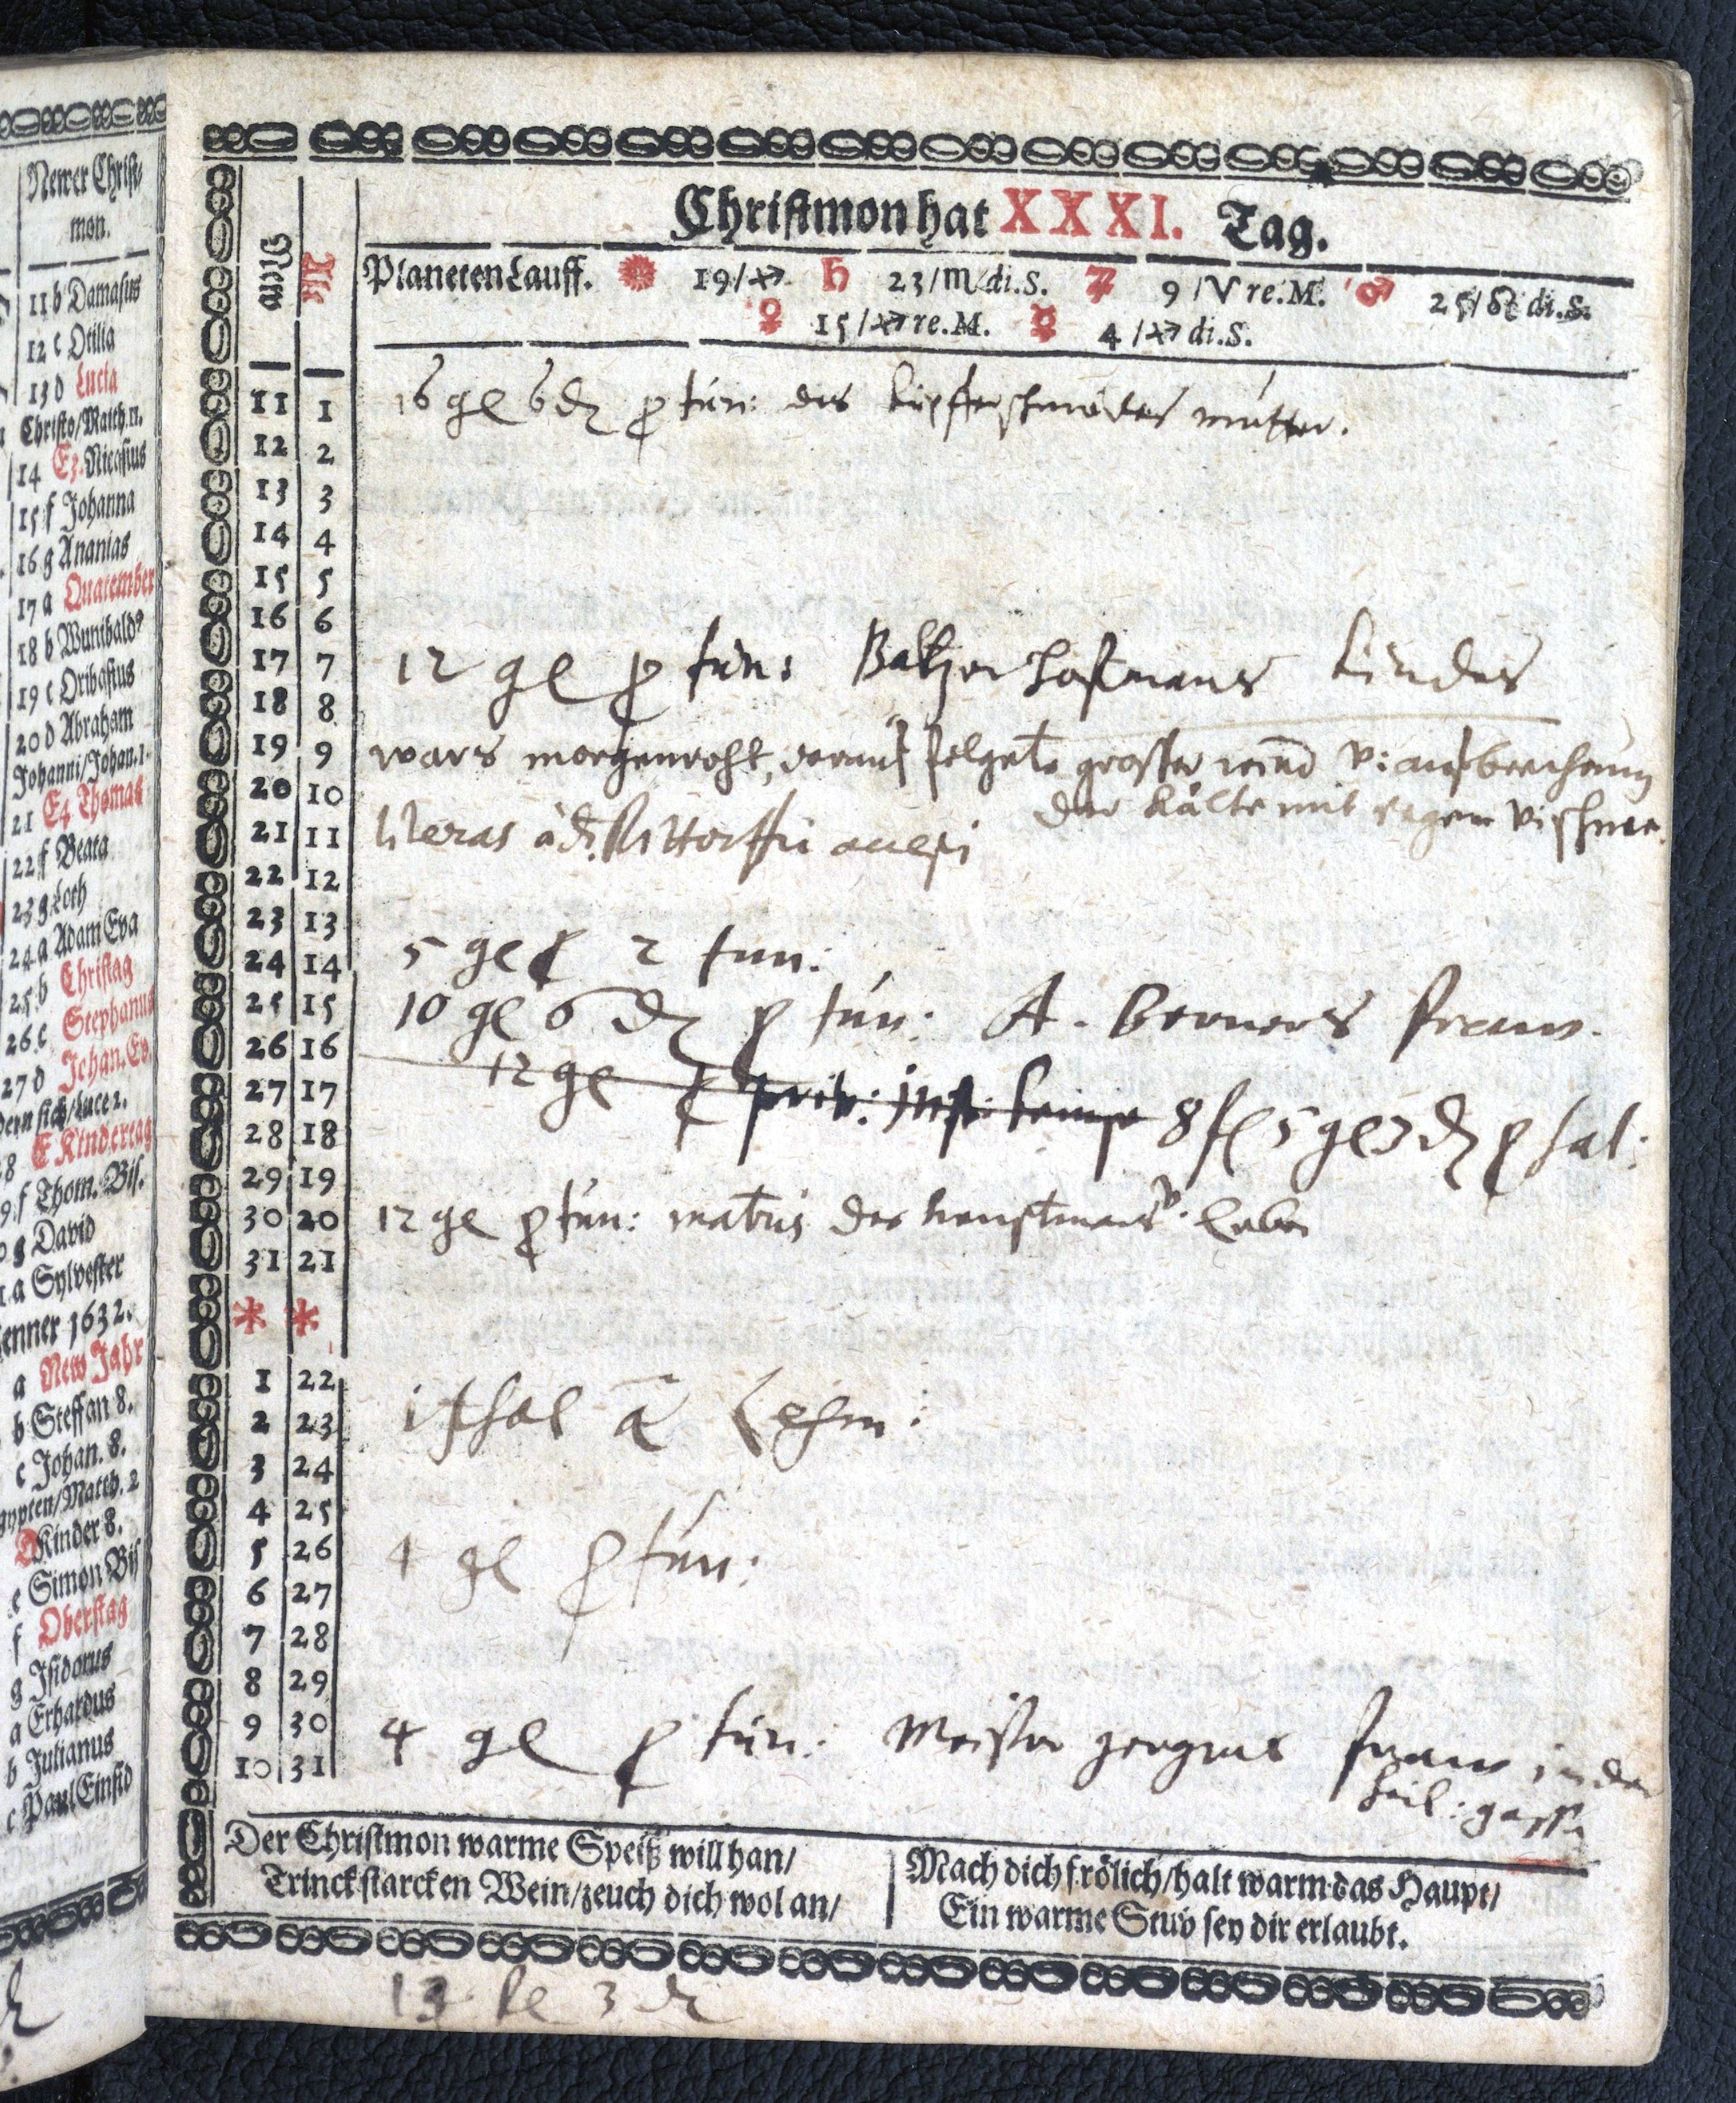 Newer Christ/
mon.
11 b Damasus
12 c Otilia
13 d Lucia
Christo/Matth. 11.
14 E3. Nicasius
15 f Johanna
16 g Ananias
17 a Quatember
18 b Wunibald9
19 c Oribasius
20 d Abraham
Johanni/Johan. 1.
21 E4 Thomas
22 f Beata
23 g Loth
24 a Adam Eva
25 b Christag
26 c Stephanus
27 d Johan. Ev.
dern sich/Luce 2.
28 E Kindertag
29 f Thom. Bis.
30 g David
31 a Sylvester
Jenner 1632.
a New Jahr
b Steffan 8.
c Johan. 8.
gypten/Matth. 2
Kinder 8.
e Simon Bis
f Oberstag
g Isidorus
a Erhardus
b Julianus
c Paul Einsid
Christmon hat XXXI. Tag.
New Alt
Planeten Lauff. ☀ 19/♐ ♄ 23/♏ di. S. ♃ 9/♈ re. M. ♂ 25/♉ di. S.
♀ 15/♐ re. M. ☿ 4/♐ di. S.
11 1 16 gl 6 d p tun: des kupferschmides mutter.
12 2
13 3
14 4
15 5
16 6
17 7 12 gl p tun: Baltzer Hofmans kindes
18 8
19 9 wars morgenroht, darauf folgete grosser wind v: aufbrechung
20 10 der kälte mit regen v: schnee.
21 11 literas a d. Alttorffii accepi
22 12
23 13
24 14 5 gl p 2 tun:
25 15 10 gl 6 d p tun: A. Berners frawe.
26 16
27 17 12 gl p 8 fl 5 gl 3 d p sal:
28 18
29 19
30 20 12 gl p tun: matris der
31 21
* *
1 22
2 23 1 fl
3 24
4 25
5 26 4 gl p tun:
6 27
7 28
8 29
9 30 4 gl p tun: Meister frawe in der
10 31 heil: gasse
Der Christmon warme Speiß will han/
Trinck starcken Wein/zeuch dich wol an/
Mach dich frölich/halt warm das Haupt/
Ein warme Stub sey dir erlaubt.
13 fl 3 d